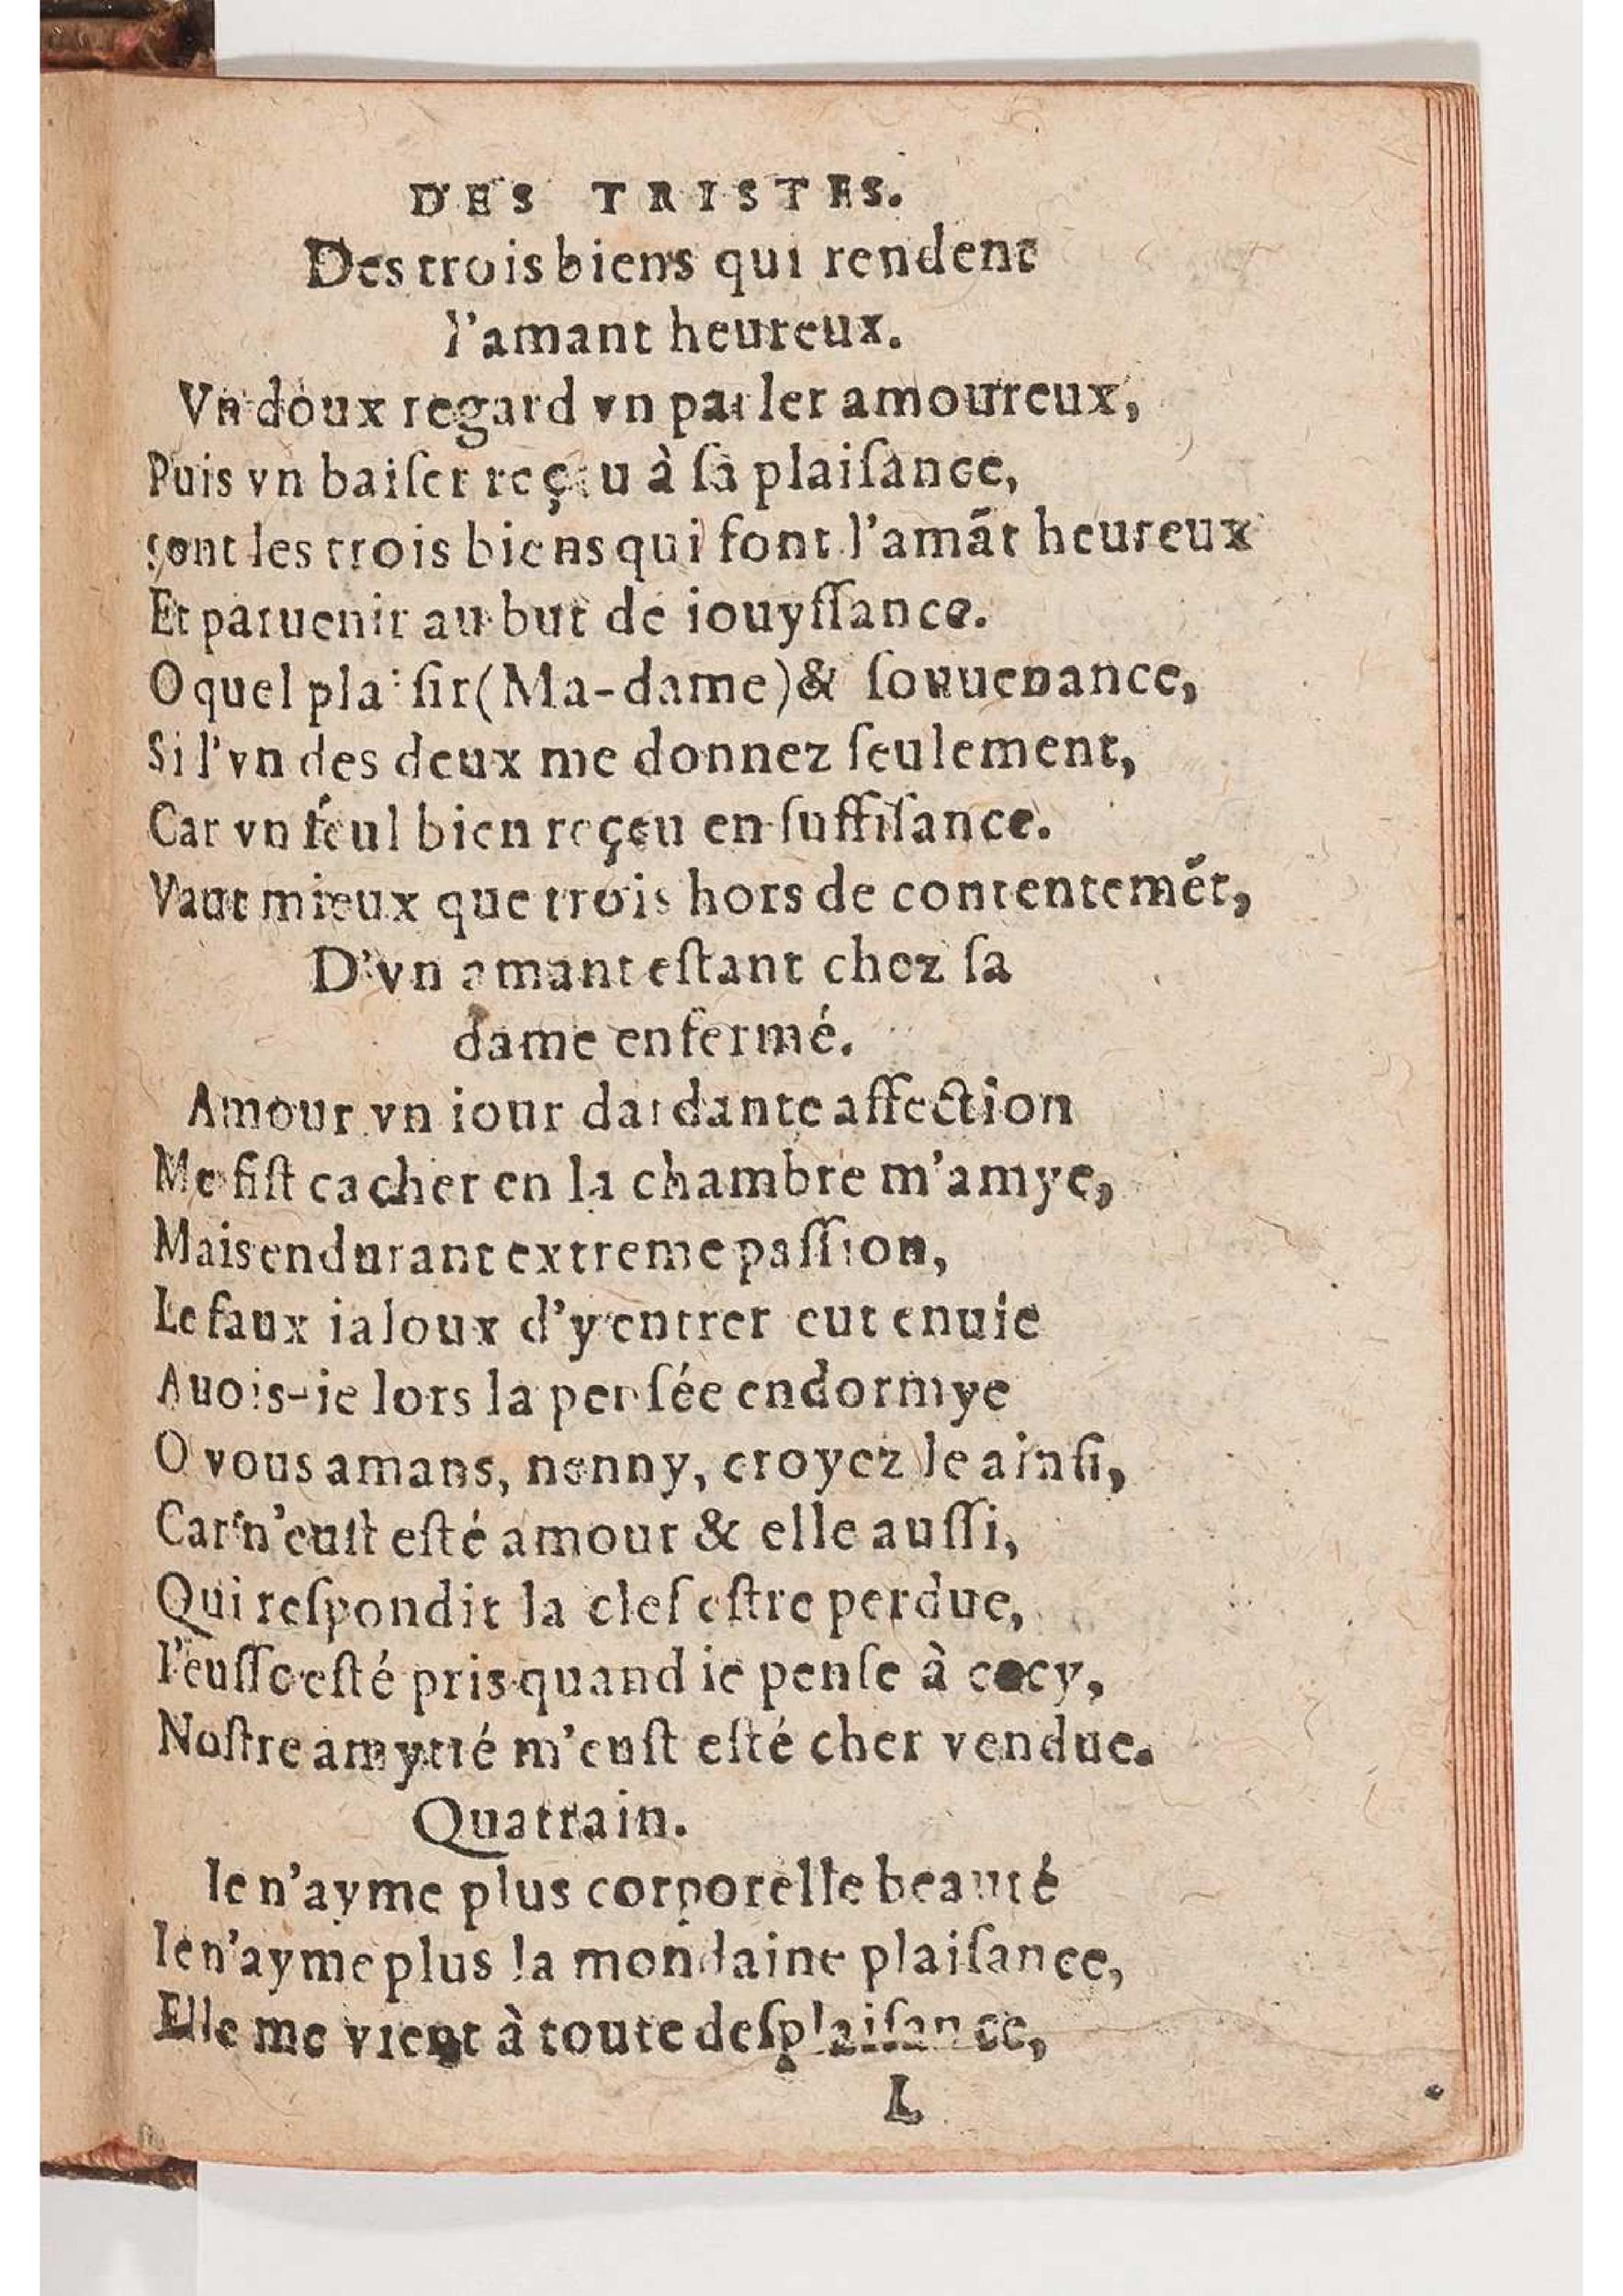 DES TRISTES.
Des trois biens qui rendent
l'amant heureux.
Vn doux regard vn parler amoureux,
Puis vn baiſer reçeu à ſa plaiſance,
ſont les trois biens qui font l'amãt heureux
Et paruenir au but de iouyſſance.
O quel plaiſir (Ma-dame) & ſouuenance,
Si l'vn des deux me donnez ſeulement,
Car vn ſeul bien reçeu en ſuffiſance.
Vaut mieux que trois hors de contentemẽt,
D'vn amant eſtant chez ſa
dame enfermé.
Amour vn iour dardante affection
Me fiſt cacher en la chambre m'amye,
Mais endurant extreme paſſion,
Le faux ialoux d'y entrer eut enuie
Auois-ie lors la penſée endormye
O vous amans, nenny, croyez le ainſi,
Car n'euſt eſté amour & elle auſſi,
Qui reſpondit la clef eſtre perdue,
I'euſſe eſté pris quand ie penſe à cecy,
Noſtre amytié m'euſt eſté cher vendue.
Quatrain.
Ie n'ayme plus corporelle beauté
Ie n'ayme plus la mondaine plaiſance,
Elle me vient à toute deſplaiſance,
L